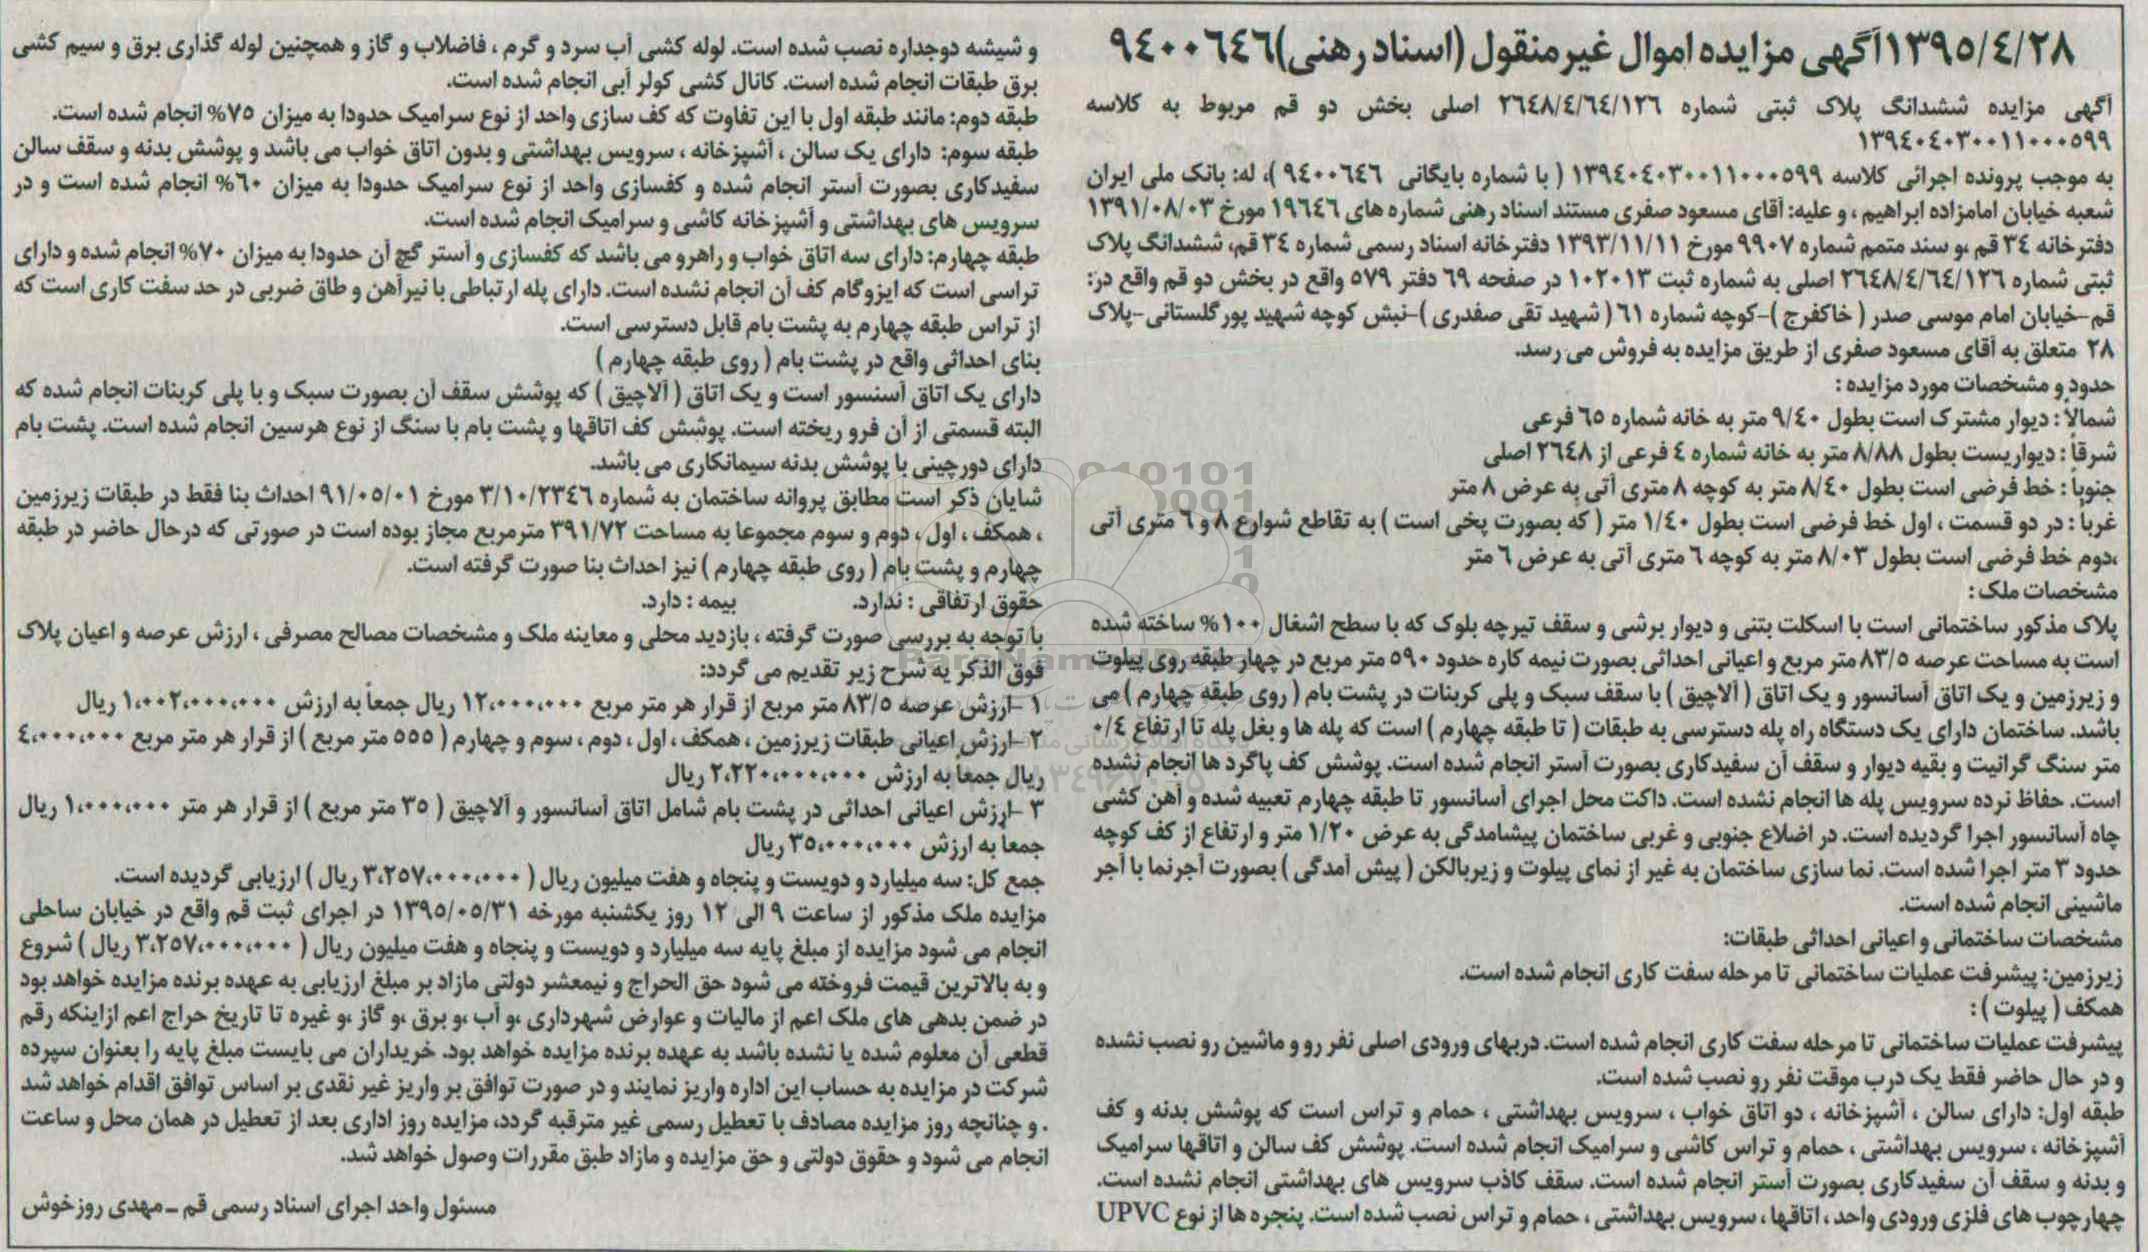 ۱۳۹۵/۴/۲۸آگهی مزایده اموال غیرمنقول (اسناد رهنی)۹۴۰۰۶۴۶
آگهی مزایده ششدانگ پلاک ثبتی شماره ۲۶۴۸/۴/۶۴/۱۲۶ اصلی بخش دو قم مربوط به کلاسه
۱۳۹۴۰۴۰۳۰۰۱۱۰۰۰۵۹۹
به موجب پرونده اجرائی کلاسه ۱۳۹۴۰۴۰۳۰۰۱۱۰۰۰۵۹۹ ( با شماره بایگانی ۹۴۰۰۶۴۶ )، له: بانک ملی ایران
شعبه خیابان امامزاده ابراهیم ، و علیه: آقای مسعود صفری مستند اسناد رهنی شماره های ۱۹۶۴۶ مورخ ۱۳۹۱/۰۸/۰۳
دفترخانه ۳۴ قم ،و سند متمم شماره ۹۹۰۷ مورخ ۱۳۹۳/۱۱/۱۱ دفترخانه اسناد رسمی شماره ۳۴ قم، ششدانگ پلاک
ثبتی شماره ۲۶۴۸/۴/۶۴/۱۲۶ اصلی به شماره ثبت ۱۰۲۰۱۳ در صفحه ۶۹ دفتر ۵۷۹ واقع در بخش دو قم واقع در:
قم-خیابان امام موسی صدر ( خاکفرج )-کوچه شماره ۶۱ ( شهید تقی صفدری )-نبش کوچه شهید پورگلستانی-پلاک
۲۸ متعلق به آقای مسعود صفری از طریق مزایده به فروش می رسد.
حدود و مشخصات مورد مزایده :
شمالاً : دیوار مشترک است بطول ۹/۴۰ متر به خانه شماره ۶۵ فرعی
شرقاً : دیواریست بطول ۸/۸۸ متر به خانه شماره ۴ فرعی از ۲۶۴۸ اصلی
جنوباً : خط فرضی است بطول ۸/۴۰ متر به کوچه ۸ متری آتی به عرض ۸ متر
غرباً : در دو قسمت ، اول خط فرضی است بطول ۱/۴۰ متر ( که بصورت پخی است ) به تقاطع شوارع ۸ و ۶ متری آتی
،دوم خط فرضی است بطول ۸/۰۳ متر به کوچه ۶ متری آتی به عرض ۶ متر
مشخصات ملک :
پلاک مذکور ساختمانی است با اسکلت بتنی و دیوار برشی و سقف تیرچه بلوک که با سطح اشغال ۱۰۰% ساخته شده
است به مساحت عرصه ۸۳/۵ متر مربع و اعیانی احداثی بصورت نیمه کاره حدود ۵۹۰ متر مربع در چهار طبقه روی پیلوت
و زیرزمین و یک اتاق آسانسور و یک اتاق ( آلاچیق ) با سقف سبک و پلی کربنات در پشت بام ( روی طبقه چهارم ) می
باشد. ساختمان دارای یک دستگاه راه پله دسترسی به طبقات ( تا طبقه چهارم ) است که پله ها و بغل پله تا ارتفاع ۰/۴
متر سنگ گرانیت و بقیه دیوار و سقف آن سفیدکاری بصورت آستر انجام شده است. پوشش کف پاگرد ها انجام نشده
است. حفاظ نرده سرویس پله ها انجام نشده است. داکت محل اجرای آسانسور تا طبقه چهارم تعبیه شده و آهن کشی
چاه آسانسور اجرا گردیده است. در اضلاع جنوبی و غربی ساختمان پیشامدگی به عرض ۱/۲۰ متر و ارتفاع از کف کوچه
حدود ۳ متر اجرا شده است. نما سازی ساختمان به غیر از نمای پیلوت و زیربالکن ( پیش آمدگی ) بصورت آجرنما با آجر
ماشینی انجام شده است.
مشخصات ساختمانی و اعیانی احداثی طبقات:
زیرزمین: پیشرفت عملیات ساختمانی تا مرحله سفت کاری انجام شده است.
همکف ( پیلوت ) :
پیشرفت عملیات ساختمانی تا مرحله سفت کاری انجام شده است. دربهای ورودی اصلی نفر رو و ماشین رو نصب نشده
و در حال حاضر فقط یک درب موقت نفر رو نصب شده است.
طبقه اول: دارای سالن ، آشپزخانه ، دو اتاق خواب ، سرویس بهداشتی ، حمام و تراس است که پوشش بدنه و کف
آشپزخانه ، سرویس بهداشتی ، حمام و تراس کاشی و سرامیک انجام شده است. پوشش کف سالن و اتاقها سرامیک
و بدنه و سقف آن سفیدکاری بصورت آستر انجام شده است. سقف کاذب سرویس های بهداشتی انجام نشده است.
چهارچوب های فلزی ورودی واحد ، اتاقها ، سرویس بهداشتی ، حمام و تراس نصب شده است. پنجره ها از نوع UPVC
و شیشه دوجداره نصب شده است. لوله کشی آب سرد و گرم ، فاضلاب و گاز و همچنین لوله گذاری برق و سیم کشی
برق طبقات انجام شده است. کانال کشی کولر آبی انجام شده است.
طبقه دوم: مانند طبقه اول با این تفاوت که کف سازی واحد از نوع سرامیک حدودا به میزان ۷۵% انجام شده است.
طبقه سوم: دارای یک سالن ، آشپزخانه ، سرویس بهداشتی و بدون اتاق خواب می باشد و پوشش بدنه و سقف سالن
سفیدکاری بصورت آستر انجام شده و کفسازی واحد از نوع سرامیک حدودا به میزان ۶۰% انجام شده است و در
سرویس های بهداشتی و آشپزخانه کاشی و سرامیک انجام شده است.
طبقه چهارم: دارای سه اتاق خواب و راهرو می باشد که کفسازی و آستر گچ آن حدودا به میزان ۷۰% انجام شده و دارای
تراسی است که ایزوگام کف آن انجام نشده است. دارای پله ارتباطی با تیرآهن و طاق ضربی در حد سفت کاری است که
از تراس طبقه چهارم به پشت بام قابل دسترسی است.
بنای احداثی واقع در پشت بام ( روی طبقه چهارم )
دارای یک اتاق آسنسور است و یک اتاق ( آلاچیق ) که پوشش سقف آن بصورت سبک و با پلی کربنات انجام شده که
البته قسمتی از آن فرو ریخته است. پوشش کف اتاقها و پشت بام با سنگ از نوع هرسین انجام شده است. پشت بام
دارای دورچینی با پوشش بدنه سیمانکاری می باشد.
شایان ذکر است مطابق پروانه ساختمان به شماره ۳/۱۰/۲۳۴۶ مورخ ۹۱/۰۵/۰۱ احداث بنا فقط در طبقات زیرزمین
، همکف ، اول ، دوم و سوم مجموعا به مساحت ۳۹۱/۷۲ مترمربع مجاز بوده است در صورتی که درحال حاضر در طبقه
چهارم و پشت بام ( روی طبقه چهارم ) نیز احداث بنا صورت گرفته است.
حقوق ارتفاقی : ندارد. بیمه : دارد.
با توجه به بررسی صورت گرفته ، بازدید محلی و معاینه ملک و مشخصات مصالح مصرفی ، ارزش عرصه و اعیان پلاک
فوق الذکر به شرح زیر تقدیم می گردد:
۱ -ارزش عرصه ۸۳/۵ متر مربع از قرار هر متر مربع ۱۲،۰۰۰،۰۰۰ ریال جمعاً به ارزش ۱،۰۰۲،۰۰۰،۰۰۰ ریال
۲ -ارزش اعیانی طبقات زیرزمین ، همکف ، اول ، دوم ، سوم و چهارم ( ۵۵۵ متر مربع ) از قرار هر متر مربع ۴،۰۰۰،۰۰۰
ریال جمعاً به ارزش ۲،۲۲۰،۰۰۰،۰۰۰ ریال
۳ -ارزش اعیانی احداثی در پشت بام شامل اتاق آسانسور و آلاچیق ( ۳۵ متر مربع ) از قرار هر متر ۱،۰۰۰،۰۰۰ ریال
جمعاً به ارزش ۳۵،۰۰۰،۰۰۰ ریال
جمع کل: سه میلیارد و دویست و پنجاه و هفت میلیون ریال ( ۳،۲۵۷،۰۰۰،۰۰۰ ریال ) ارزیابی گردیده است.
مزایده ملک مذکور از ساعت ۹ الی ۱۲ روز یکشنبه مورخه ۱۳۹۵/۰۵/۳۱ در اجرای ثبت قم واقع در خیابان ساحلی
انجام می شود مزایده از مبلغ پایه سه میلیارد و دویست و پنجاه و هفت میلیون ریال ( ۳،۲۵۷،۰۰۰،۰۰۰ ریال ) شروع
و به بالاترین قیمت فروخته می شود حق الحراج و نیمعشر دولتی مازاد بر مبلغ ارزیابی به عهده برنده مزایده خواهد بود
در ضمن بدهی های ملک اعم از مالیات و عوارض شهرداری ،و آب ،و برق ،و گاز ،و غیره تا تاریخ حراج اعم ازاینکه رقم
قطعی آن معلوم شده یا نشده باشد به عهده برنده مزایده خواهد بود. خریداران می بایست مبلغ پایه را بعنوان سپرده
شرکت در مزایده به حساب این اداره واریز نمایند و در صورت توافق بر واریز غیر نقدی بر اساس توافق اقدام خواهد شد
. و چنانچه روز مزایده مصادف با تعطیل رسمی غیر مترقبه گردد، مزایده روز اداری بعد از تعطیل در همان محل و ساعت
انجام می شود و حقوق دولتی و حق مزایده و مازاد طبق مقررات وصول خواهد شد.
مسئول واحد اجرای اسناد رسمی قم ـ مهدی روزخوش